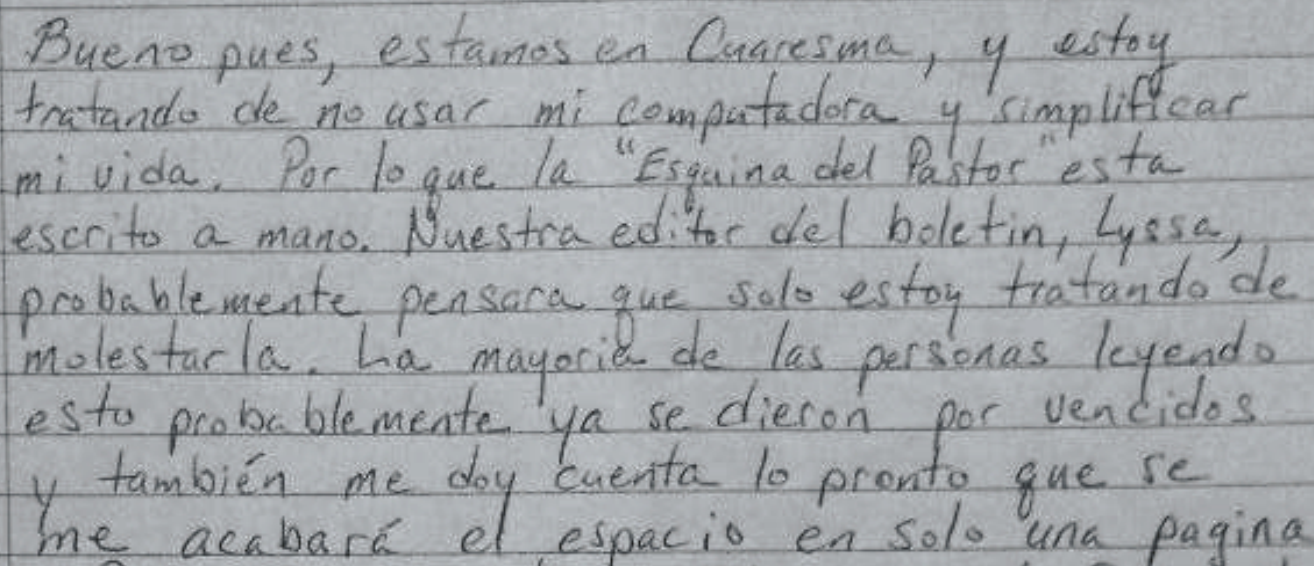 Bueno pues, estamos en Cuaresma, y estoy
tratando de no usar mi computadora y simplificar
mi vida. Por lo que la "Esquina del Pastor" esta
escrito a mano. Nuestra editor del boletin, Lyssa,
probablemente pensara que solo estoy tratando de
molestarla. La mayoria de las personas leyendo
esto probablemente ya se dieron por vencidos
y también me doy cuenta lo pronto que se
me acabará el espacio en solo una pagina